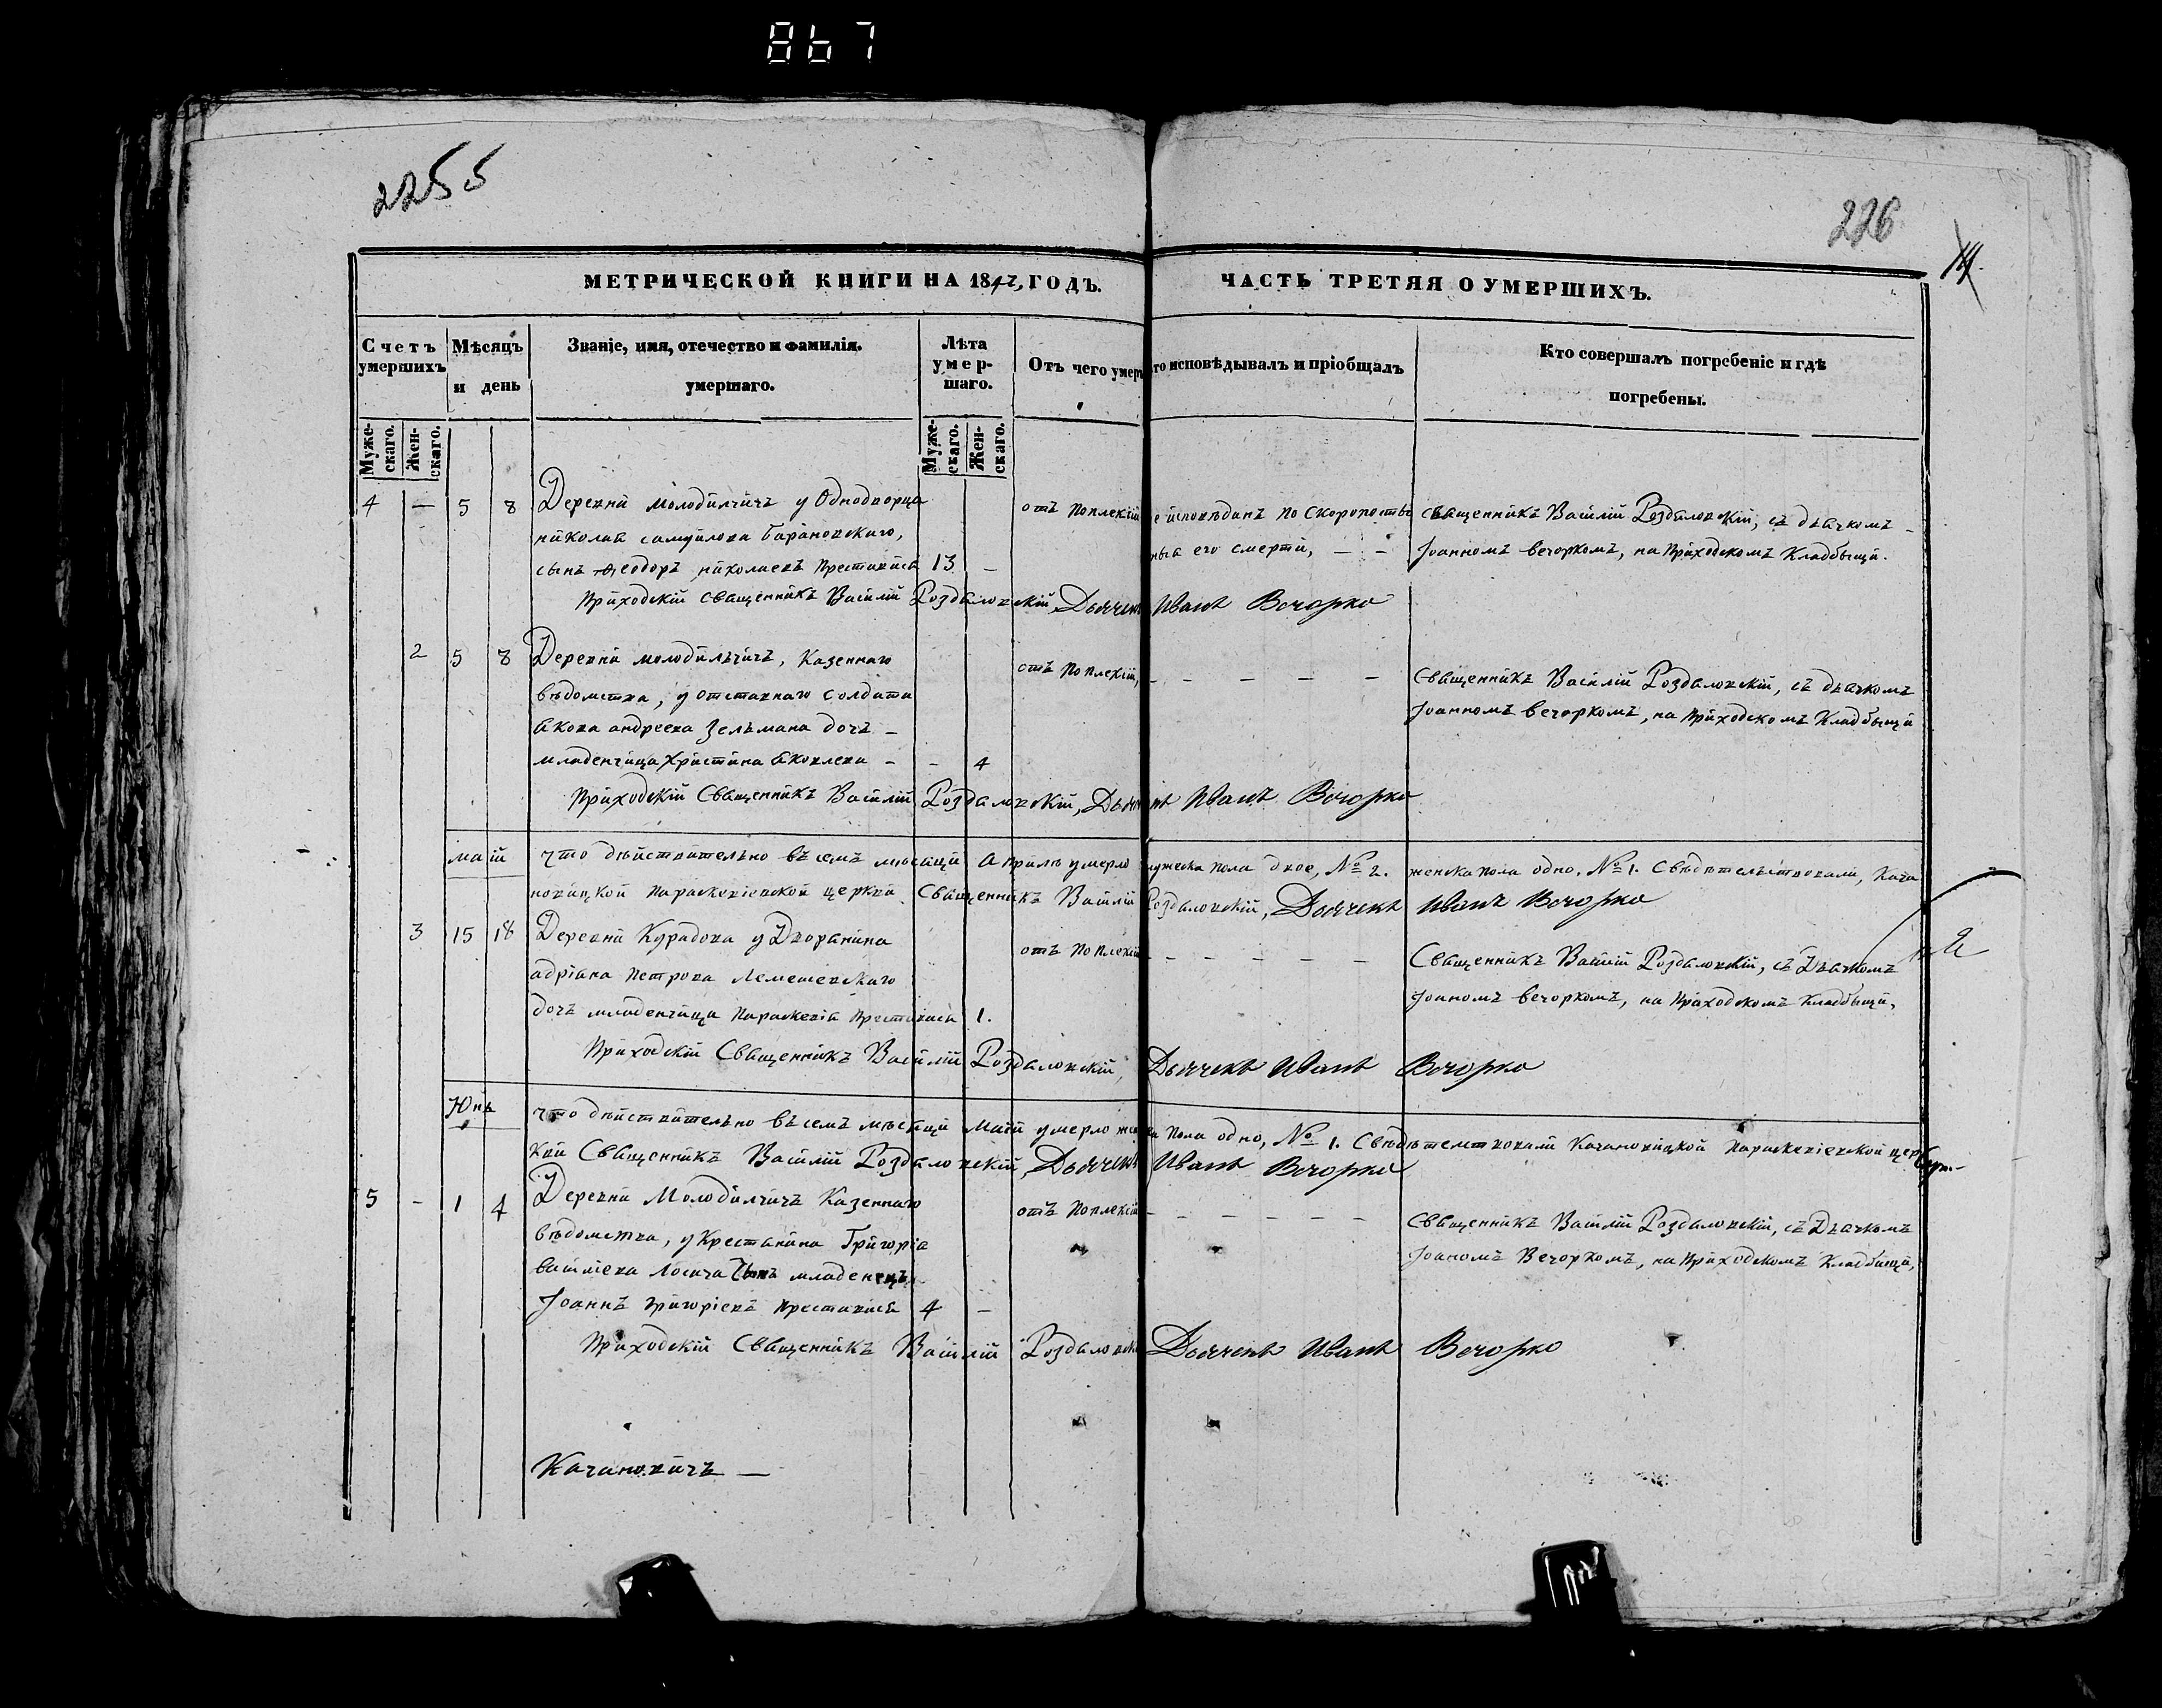 867
2255
226
МЕТРИЧЕСКОЙ КНИГИ НА 1842, ГОДЪ.
ЧАСТЬ ТРЕТЯЯ О УМЕРШИХЪ.
Счетъ умершихъ
Мѣсяцъ и день
Званіе, имя, отечество и фамилія. умершаго.
Лѣта умер-шаго.
Отъ чего умер
то исповѣдывалъ и пріобщалъ
Кто совершалъ погребеніе и гдѣ погребены.
Муже-скаго.
Жен-скаго.
Муже-скаго.
Жен-скаго.
4 — 5 8 Деревни Молодильчичъ у Однодворца
отъ Поплексіи
е исповѣданъ по скоропостиж
Священникъ Василій Роздаловскій, съ дьячкомъ
николая самуилова Барановскаго,
ныя его смерти, — —
Іоанномъ вечоркомъ, на Приходскомъ Кладбыщи.
сынъ Феодоръ николаевъ Преставися 13 —
Приходскій священникъ Василій Роздаловскій, Дьячекъ Иванъ Вечорко
2 5 8 Деревни молодильчичъ, Казеннаго
отъ Поплексіи, — — — — —
Священникъ Василій Роздаловскій, съ дьячкомъ
вѣдомства, у отставнаго солдата
Іоанномъ вечоркомъ, на Приходскомъ Кладбыщи
Якова андреева Зельмана дочь —
младенчица Христина Яковлева — — 4
Приходскій Священникъ Василій Роздаловскій, Дьячекъ Иванъ Вечорко
маій
что дѣйствительно въ семъ мѣсяци Априлѣ умерло мужеска пола двое, № 2. женска пола одно, № 1. Свѣдѣтельствовали, Кача
новицкой Параскевіевской церкви Священникъ Василій Роздаловскій, Дьячекъ Иванъ Вечорко
3 15 18 Деревни Курадова у Дворянина
отъ Поплексіи — — — — — —
Священникъ Василій Роздаловскій, съ Дьячкомъ
адріана Петрова Лемешевскаго
Іоанномъ вечоркомъ, на Приходскомъ Кладбыщи,
дочь младенчица Параскевія Преставися 1.
Приходскій Священникъ Василій Роздаловскій, Дьячекъ Иванъ Вечорко
Юнь
что дѣйствительно въ семъ мѣсяци Маіи умерло женска Пола одно, № 1. Свѣдѣтелствовали Качановицкой Параскевіевской цер
кви Священникъ Василій Роздаловскій, Дьячекъ Иванъ Вечорко
5 — 1 4 Деревни Молодилчичъ Казеннаго
отъ Поплексіи — — — — — —
Священникъ Василій Роздаловскій, съ Дьячкомъ
вѣдомства, у Крестянина Григорія
Іоаномъ Вечоркомъ, на Приходскомъ Кладбищи,
василіева Лосича Сынъ младенецъ
Іоаннъ григоріевъ Преставися 4 —
Приходскій Священникъ Василій Роздаловскі Дьячекъ Иванъ Вечорко
Качановичъ —